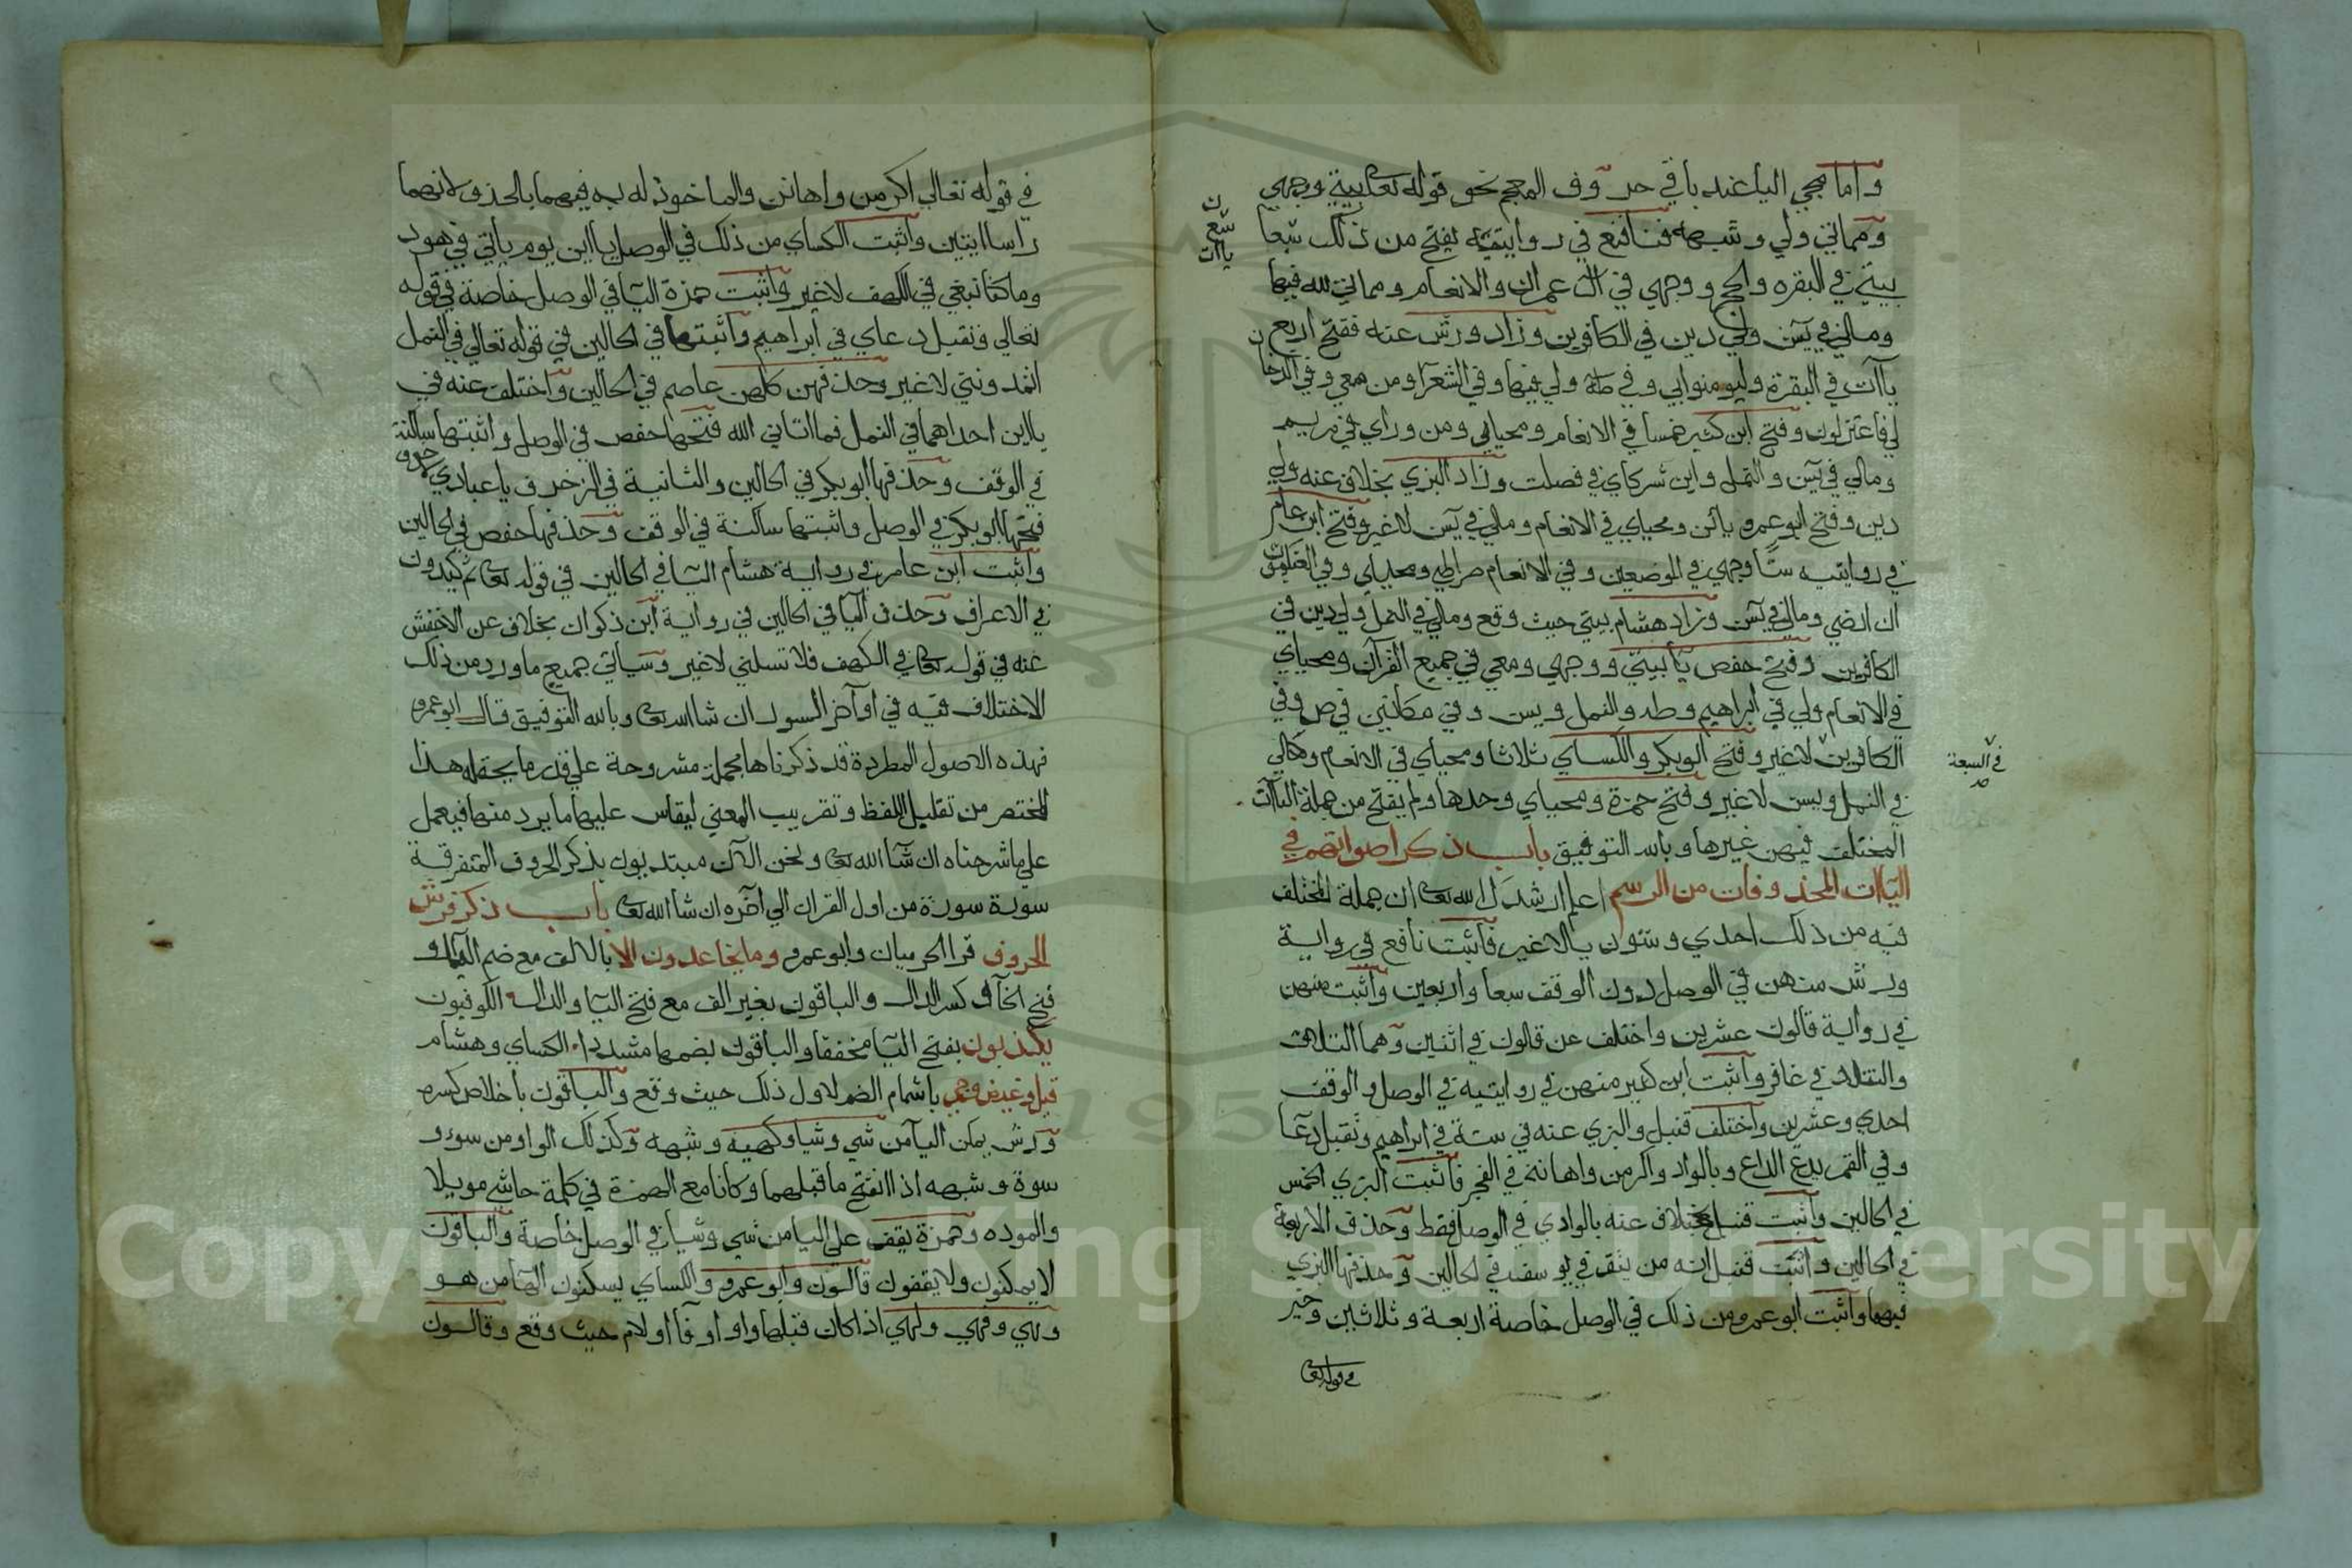 واما مجي اليا عند باقي حروف المعجم نحو قوله تعالى بيتي ووجهي
ومماتي ولي وشبهه فنافع في روايتيه يفتح من ذلك سبعا
سبع
ياات
بيتي في البقره والحج ووجهي في ال عمران والانعام ومماتي لله فيها
ومالي في يس ولي دين في الكافرين وزاد ورش عنه ففتح اربع
ياآت في البقرة وليومنوا بي وفي طه ولي فيها وفي الشعرا ومن معي وفي الدخان
لي فاعتزلون وفتح ابن كثير خمسا في الانعام ومحياي ومن وراي في مريم
ومالي في يس والنمل واين شركاي في فصلت وزاد البزي بخلاف عنه ولي
دين وفتح ابو عمرو يائين ومحياي في الانعام ومالي في يس لا غير وفتح ابن عامر
في روايتيه ستا وجهي في الموضعين وفي الانعام صراطي ومحياي وفي العنكبوت
ان ارضي ومالي في يس وزاد هشام بيتي حيث وقع ومالي في النمل ولي دين في
الكافرين وفتح حفص يا بيتي ووجهي ومعي في جميع القرآن ومحياي
في الانعام ولي في ابراهيم وطه والنمل ويس وفي مكانين في ص وفي
الكافرين لا غير وفتح ابو بكر والكساي ثلاثا ومحياي في الانعام ومالي
في السبعة
في النمل ويس لا غير وفتح حمزة ومحياي وحدها ولم يفتح من جملة الياآت
المختلف فيهن غيرها وبالله التوفيق باب ذكر اصولهم في
الياات المحذوفات من الرسم اعلم ارشدك الله تعالى ان جملة المختلف
فيه من ذلك احدي وستون يا لا غير فاثبت نافع في رواية
ورش منهن في الوصل دون الوقف سبعا واربعين واثبت منهن
في رواية قالون عشرين واختلف عن قالون في اثنين وهما التلاق
والتناد في غافر واثبت ابن كثير منهن في روايتيه في الوصل والوقف
احدي وعشرين واختلف قنبل والبزي عنه في ستة في ابراهيم وتقبل دعا
وفي القمر يدع الداع وبالواد واكرمن واهانن في الفجر فاثبت البزي الخمس
في الحالين واثبت قنبل بخلاف عنه بالوادي في الوصل فقط وحذف الاربعة
في الحالين واثبت قنبل انه من يتق في يوسف في الحالين وحذفها البزي
فيهما واثبت ابو عمرو من ذلك في الوصل خاصة اربعة وثلاثين وخير
في قوله تعالى
في قوله تعالي اكرمن واهانن والماخوذ له به فيهما بالحذف لانهما
راسا ايتين واثبت الكساي من ذلك في الوصل ياءين يوم ياتي في هود
وما كنا نبغي في الكهف لا غير واثبت حمزة اليا في الوصل خاصة في قوله
تعالي وتقبل دعاي في ابراهيم واثبتها في الحالين في قوله تعالي في النمل
اتمدونني لا غير وحذفهن كلهن عاصم في الحالين واختلف عنه في
ياءين احداهما في النمل فما اتاني الله فتحها حفص في الوصل واثبتها ساكنة
في الوقف وحذفها ابو بكر في الحالين والثانية في الزخرف يا عبادي لا خوف
فتحها ابو بكر في الوصل واثبتها ساكنة في الوقف وحذفها حفص في الحالين
واثبت ابن عامر في رواية هشام اليا في الحالين في قوله تعالى ثم كيدون
في الاعراف وحذف اليا في الحالين في رواية ابن ذكوان بخلاف عن الاخفش
عنه في قوله تعالى في الكهف فلا تسلني لا غير وسياتي جميع ما ورد من ذلك
الاختلاف فيه في اواخر السور ان شا الله تعالى وبالله التوفيق قال ابو عمرو
فهذه الاصول المطردة قد ذكرناها مجملة مشروحة علي قدر ما يحتمله هذا
المختصر من تقليل اللفظ وتقريب المعني ليقاس عليها ما يرد منها فيعمل
علي ما شرحناه ان شآ الله تعالى ونحن الآن مبتديون بذكر الحروف المتفرقة
سورة سورة من اول القران الي اخره ان شا الله تعالى باب ذكر فرش
الحروف قرا الحرميان وابو عمرو وما يخادعون الا بالالف مع ضم اليا و
فتح الخآ وكسر الدال والباقون بغير الف مع فتح اليا والدال الكوفيون
يكذبون بفتح اليا مخففا والباقون بضمها مشددا الكساي وهشام
قيل وغيض وجي باشمام الضم لاول ذلك حيث وقع والباقون باخلاص كسره
ورش يمكن اليا من شي وشيا وكهيئة وشبهه وكذلك الواو من سوء و
سوة وشبهه اذا انفتح ما قبلهما وكانا مع الهمزة في كلمة حاشي مويلا
والموده وحمزة يقف علي اليا من شي وشيا في الوصل خاصة والباقون
لا يمكنون ولا يقفون قالون وابو عمرو والكساي يسكنون الها من هو
وهي وفهي ولهي اذا كان قبلها واو او فآ او لام حيث وقع وقالون
Copyright © King Saud University
195